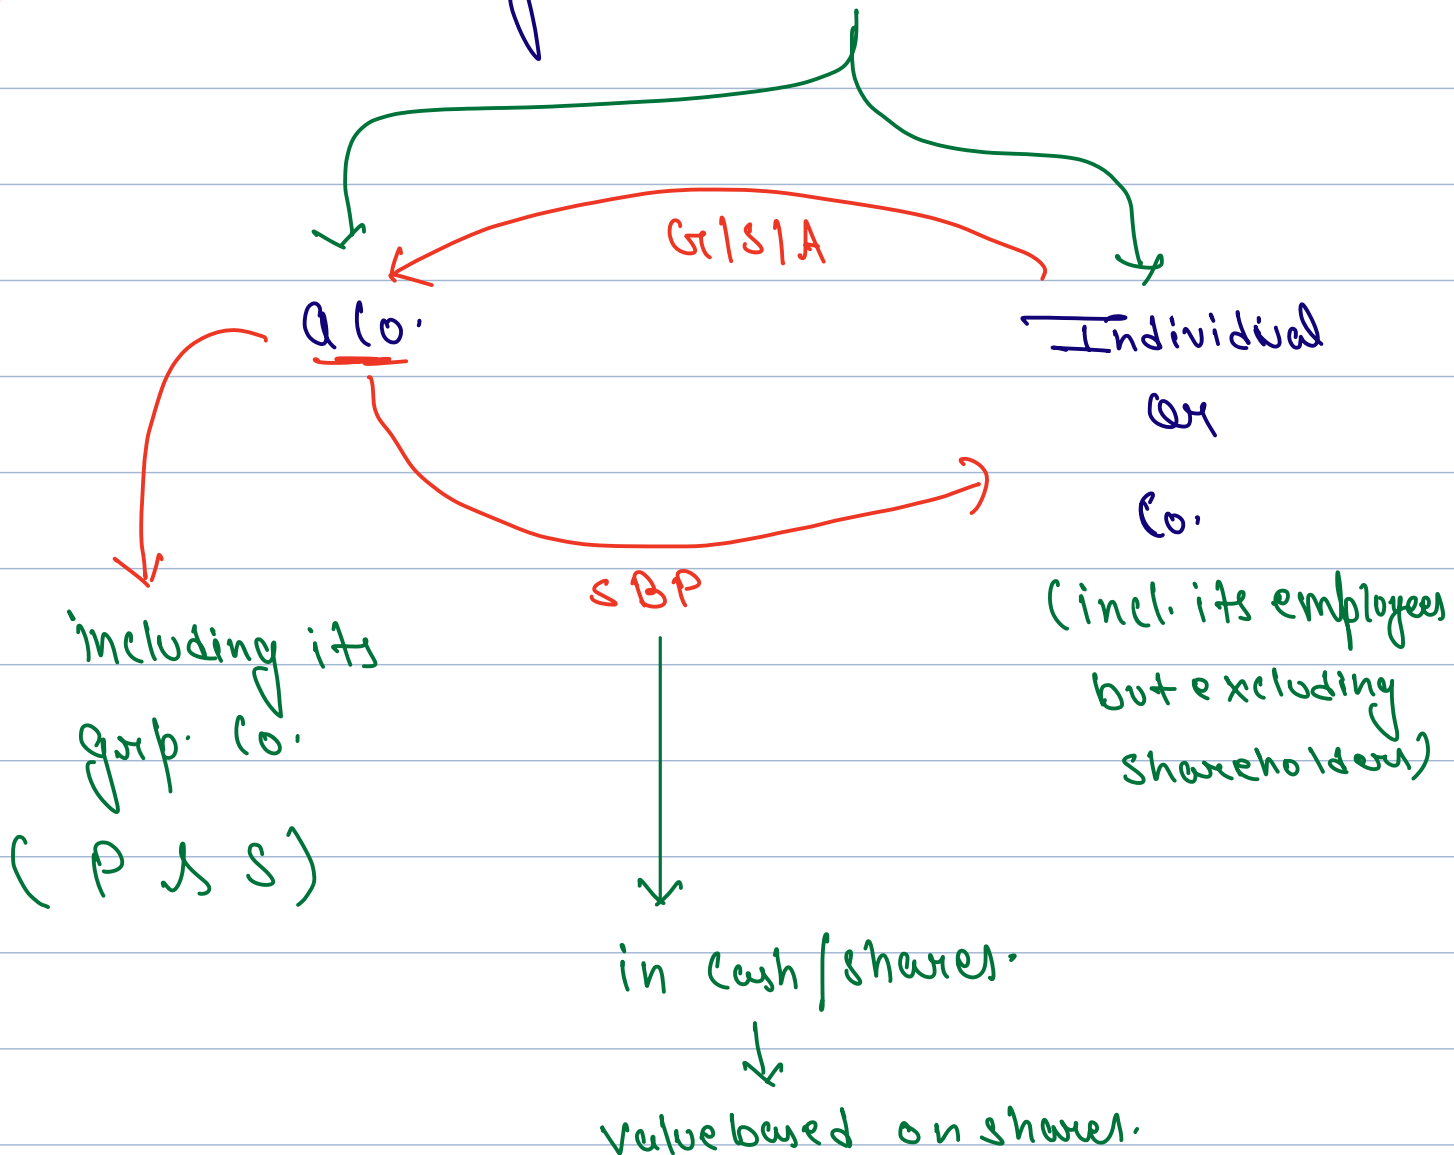 G/S/A
a Co.
Individual
or
Co.
SBP
(incl. its employees
but excluding
shareholders)
including its
grp. Co.
(P & S)
in cash/shares.
value based on shares.